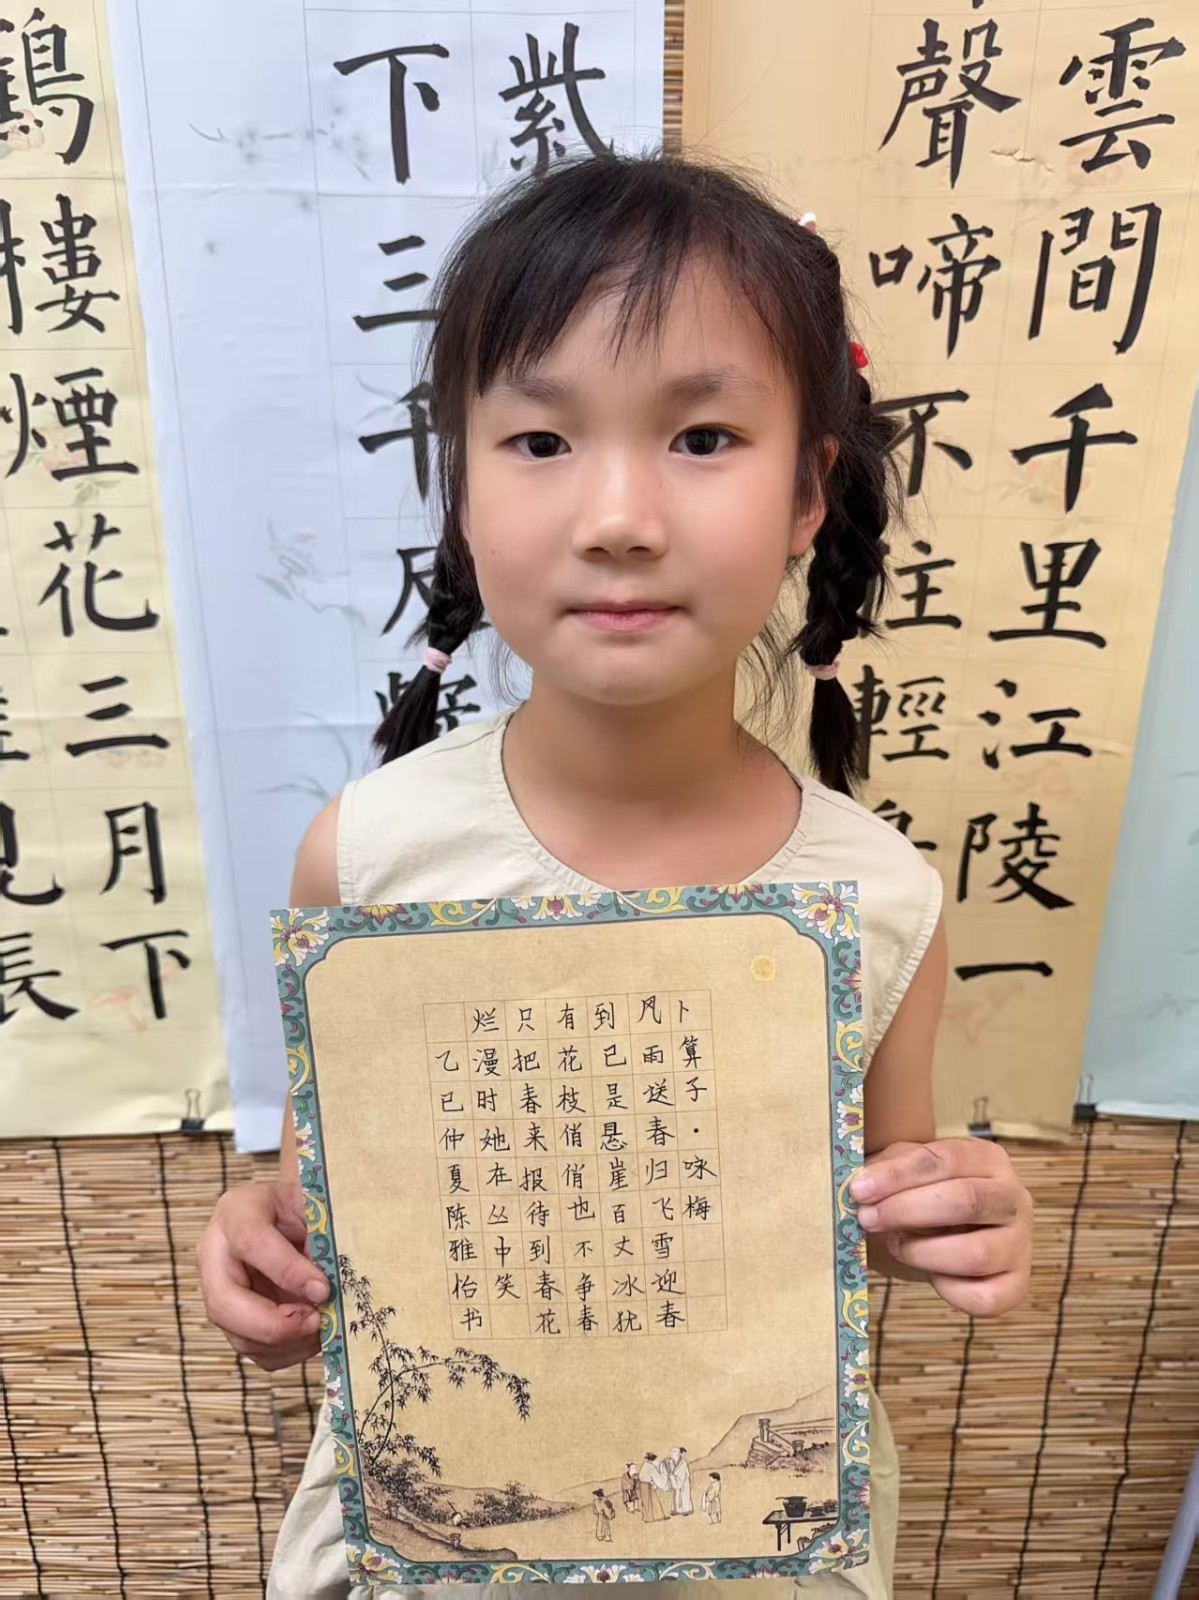 雲間千里江陵一
聲啼不住輕
紫
下三千尺疑
鶴樓煙花三月下
見長
卜算子·咏梅
风雨送春归飞雪迎春
到已是悬崖百丈冰犹
有花枝俏俏也不争春
只把春来报待到春花
烂漫时她在丛中笑
乙巳仲夏陈雅怡书